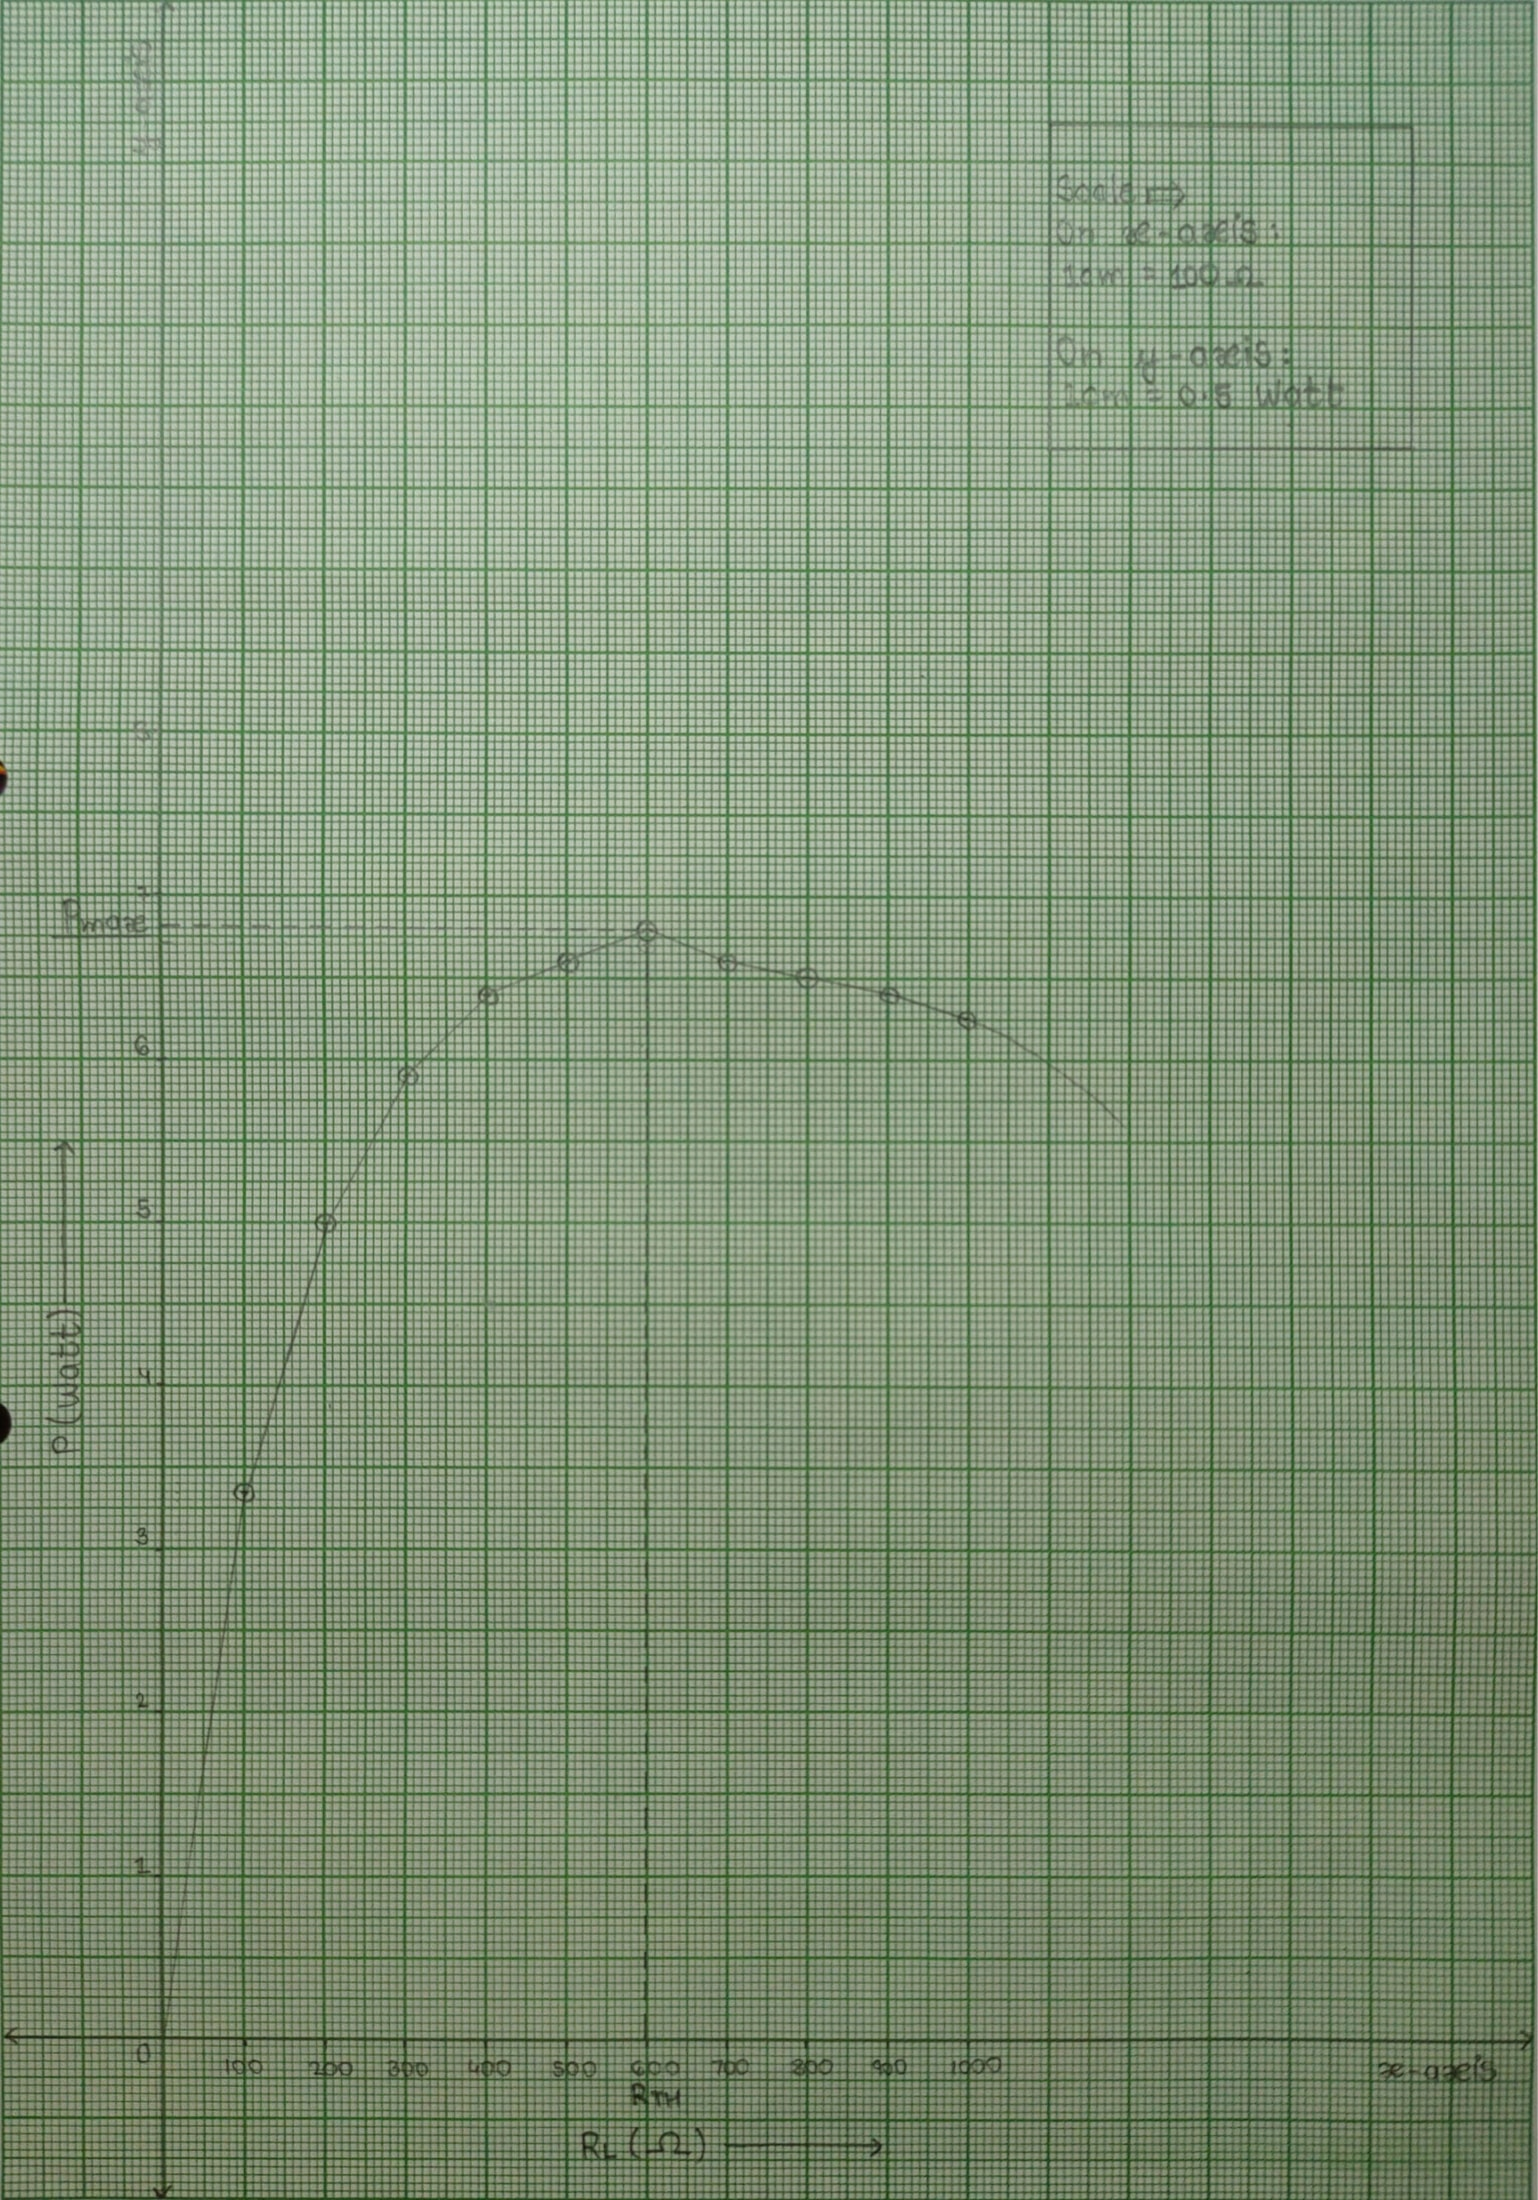 y-axis
Scale →
On x-axis:
1cm = 100 Ω
On y-axis:
1cm = 0.5 Watt
8
7
Pmax
6
5
4
3
2
1
P (watt) →
0 100 200 300 400 500 600 700 800 900 1000
x-axis
RTH
RL (Ω) →